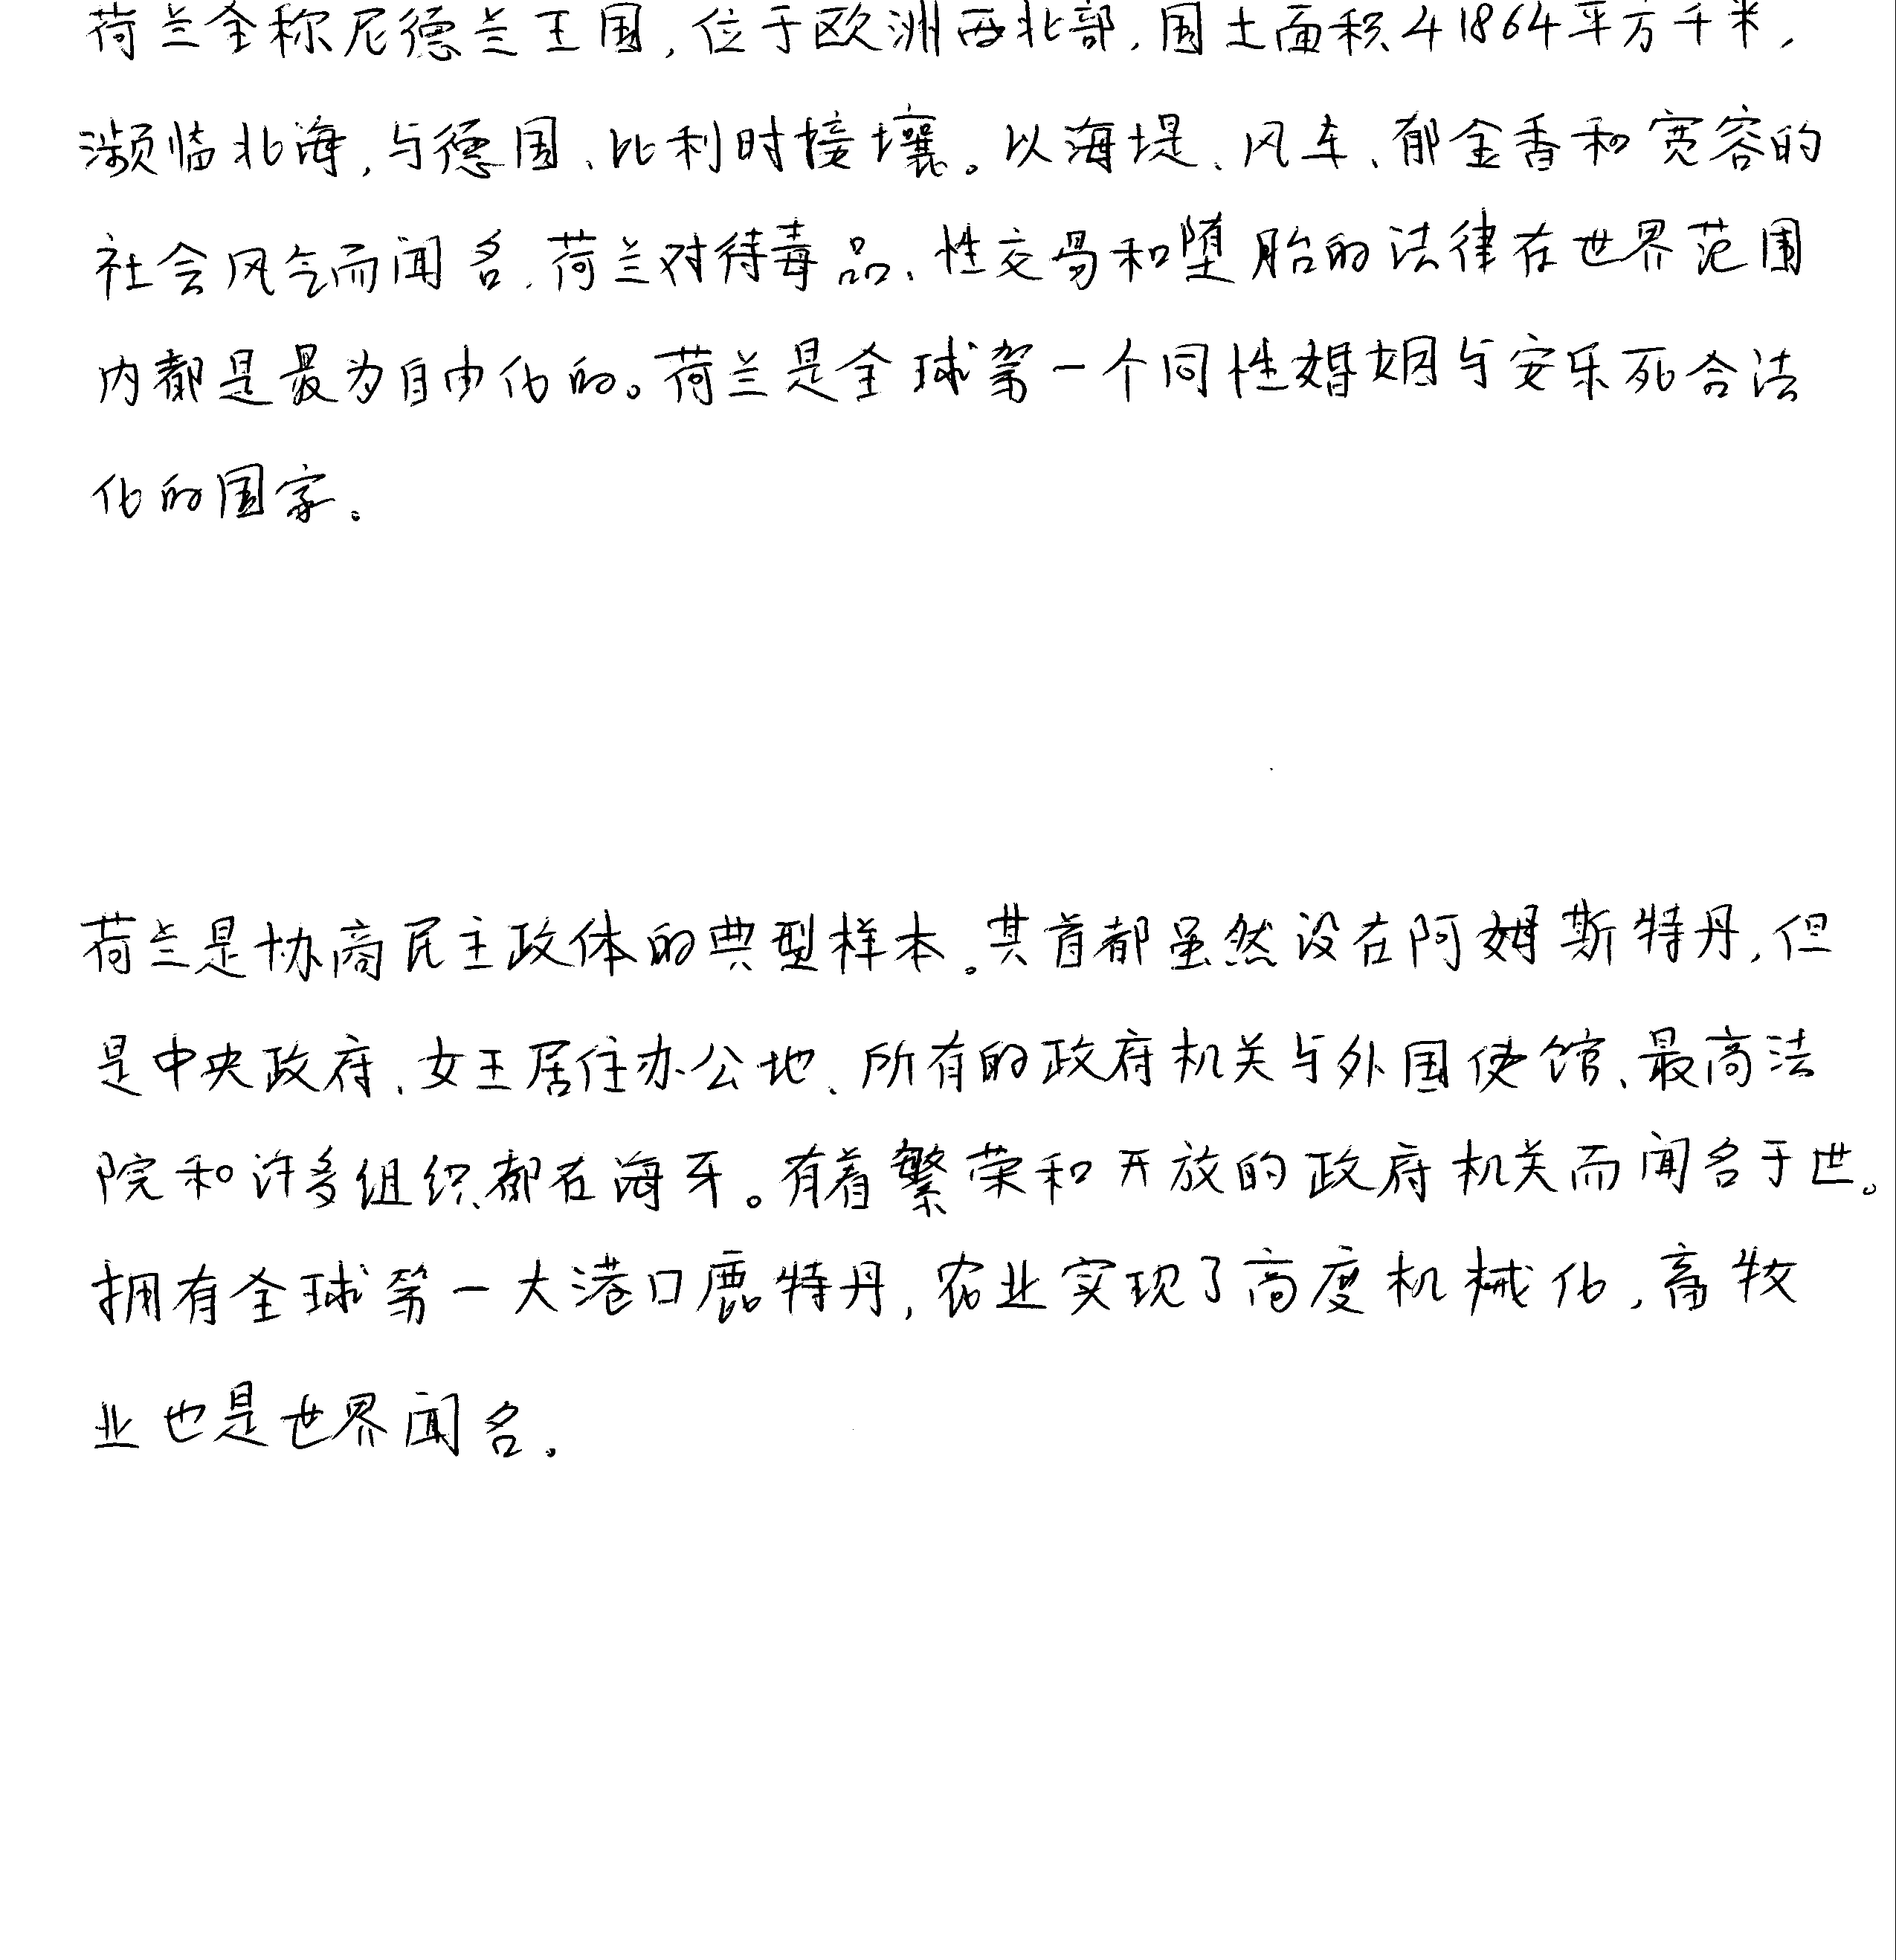 荷兰全称尼德兰王国,位于欧洲西北部,国土面积41864平方千米,
濒临北海,与德国、比利时接壤。以海堤、风车、郁金香和宽容的
社会风气而闻名,荷兰对待毒品、性交易和堕胎的法律在世界范围
内都是最为自由化的。荷兰是全球第一个同性婚姻与安乐死合法
化的国家。
荷兰是协商民主政体的典型样本。其首都虽然设在阿姆斯特丹,但
是中央政府、女王居住办公地、所有的政府机关与外国使馆、最高法
院和许多组织都在海牙。有着繁荣和开放的政府机关而闻名于世。
拥有全球第一大港口鹿特丹,农业实现了高度机械化,畜牧
业也是世界闻名。